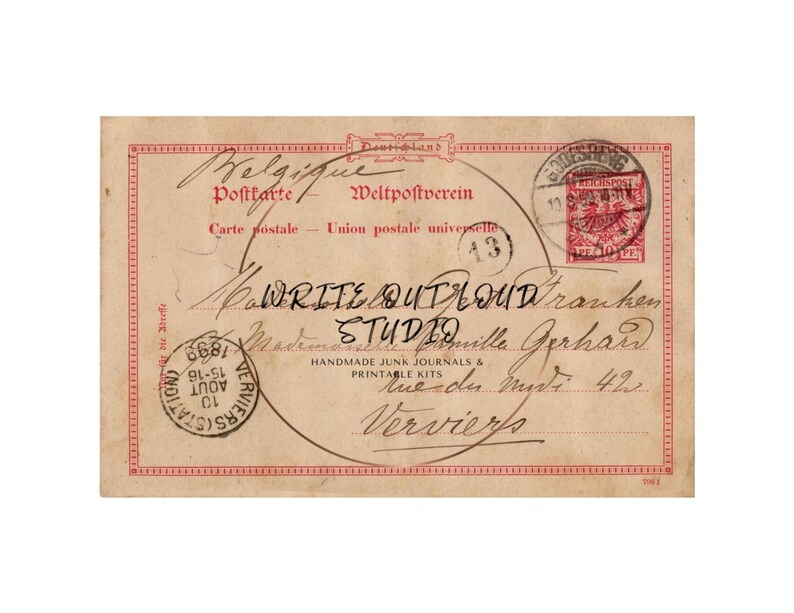 Deutschland
Belgique
Postkarte — Weltpostverein
Carte postale — Union postale universelle
GODESBERG
REICHSPOST
10 PF. 10 PF.
13
WRITE OUT LOUD
STUDIO
HANDMADE JUNK JOURNALS &
PRINTABLE KITS
Franken
Mademoiselle Camille Gerhard
Rue du midi 42
Verviers
Nur für die Adresse
VERVIERS (STATION)
10
AOUT
15-16
1899
798 f